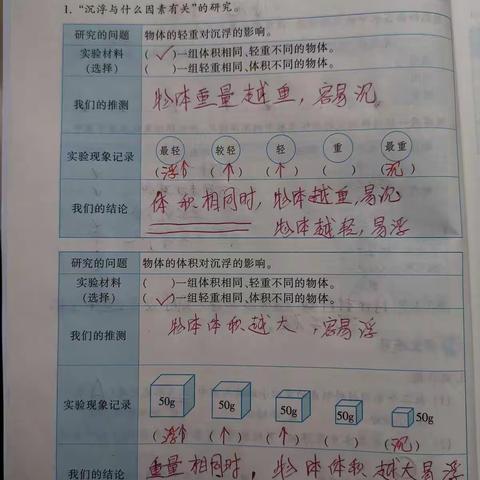 1. “沉浮与什么因素有关”的研究。
研究的问题 物体的轻重对沉浮的影响。
实验材料 (✓)一组体积相同、轻重不同的物体。
(选择) ( )一组轻重相同、体积不同的物体。
我们的推测 物体重量越重,容易沉
最轻 较轻 轻 重 最重
实验现象记录 (浮↑) (↑) (↑) ( ) (沉)
我们的结论 体积相同时,物体越重,易沉
物体越轻,易浮
研究的问题 物体的体积对沉浮的影响。
实验材料 ( )一组体积相同、轻重不同的物体。
(选择) (✓)一组轻重相同、体积不同的物体。
我们的推测 物体体积越大,容易浮
实验现象记录 50g 50g 50g 50g 50g
(浮↑) (↑) (↑) ( ) (沉)
我们的结论 重量相同时,物体体积越大易浮